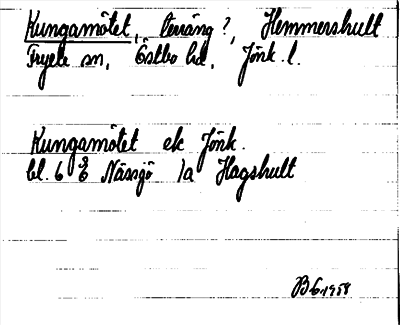 Kungamötet, terräng?, Hemmershult
Fryele sn, Östbo hd, Jönk. l.
Kungamötet ek Jönk.
bl. 6 Nässjö 1a Hagshult
1958